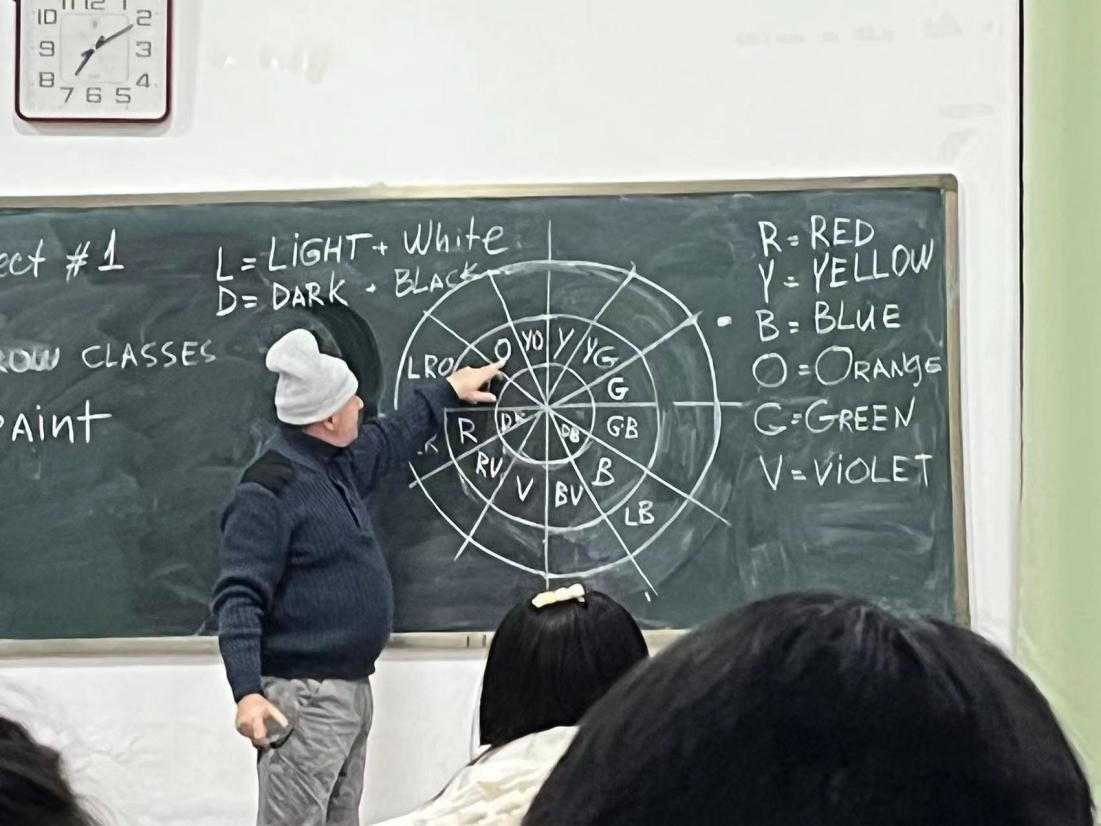 10 11 12 1 2
9 3
8 4
7 6 5
ect #1
ROW CLASSES
PAINT
L = LiGHT + White
D = DARK + BLACK
LRO
O
YO
Y
YG
G
GB
B
BV
V
RV
R
DB
LB
R = RED
Y = YELLOW
B = BLUE
O = ORANGE
G = GREEN
V = ViOLET